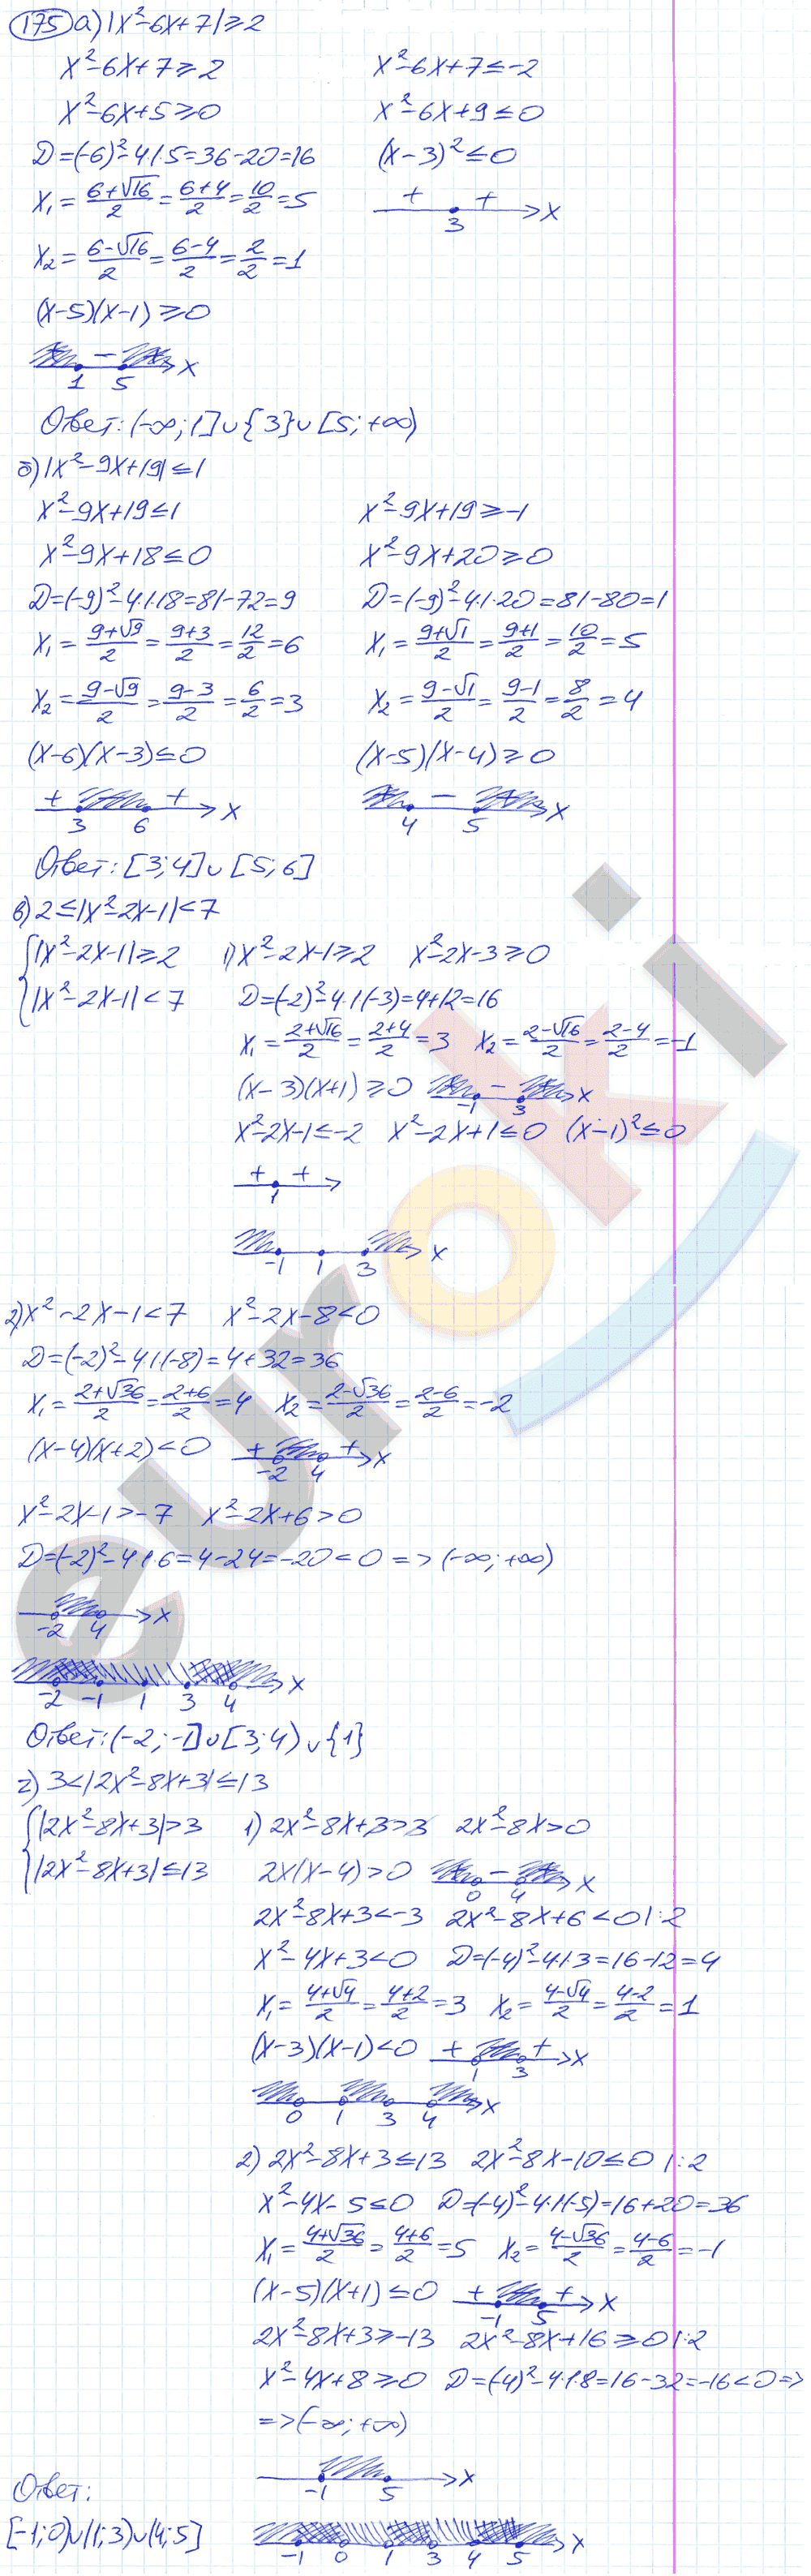 175 а) |x²-6x+7|≥2
x²-6x+7≥2 x²-6x+7≤-2
x²-6x+5≥0 x²-6x+9≤0
D=(-6)²-4·1·5=36-20=16 (x-3)²≤0
x₁=(6+√16)/2=(6+4)/2=10/2=5 + + 3 x
x₂=(6-√16)/2=(6-4)/2=2/2=1
(x-5)(x-1)≥0
+ - + 1 5 x
Ответ: (-∞;1]∪{3}∪[5;+∞)
б) |x²-9x+19|≤1
x²-9x+19≤1 x²-9x+19≥-1
x²-9x+18≤0 x²-9x+20≥0
D=(-9)²-4·1·18=81-72=9 D=(-9)²-4·1·20=81-80=1
x₁=(9+√9)/2=(9+3)/2=12/2=6 x₁=(9+√1)/2=(9+1)/2=10/2=5
x₂=(9-√9)/2=(9-3)/2=6/2=3 x₂=(9-√1)/2=(9-1)/2=8/2=4
(x-6)(x-3)≤0 (x-5)(x-4)≥0
+ - + 3 6 x + - + 4 5 x
Ответ: [3;4]∪[5;6]
в) 2≤|x²-2x-1|<7
{|x²-2x-1|≥2 1) x²-2x-1≥2 x²-2x-3≥0
{|x²-2x-1|<7 D=(-2)²-4·1·(-3)=4+12=16
x₁=(2+√16)/2=(2+4)/2=3 x₂=(2-√16)/2=(2-4)/2=-1
(x-3)(x+1)≥0 + - + -1 3 x
x²-2x-1≤-2 x²-2x+1≤0 (x-1)²≤0
+ + 1
-1 1 3 x
2) x²-2x-1<7 x²-2x-8<0
D=(-2)²-4·1·(-8)=4+32=36
x₁=(2+√36)/2=(2+6)/2=4 x₂=(2-√36)/2=(2-6)/2=-2
(x-4)(x+2)<0 + - + -2 4 x
x²-2x-1>-7 x²-2x+6>0
D=(-2)²-4·1·6=4-24=-20<0 => (-∞;+∞)
-2 4 x
-2 -1 1 3 4 x
Ответ: (-2;-1]∪[3;4)∪{1}
г) 3<|2x²-8x+3|≤13
{|2x²-8x+3|>3 1) 2x²-8x+3>3 2x²-8x>0
{|2x²-8x+3|≤13 2x(x-4)>0 + - + 0 4 x
2x²-8x+3<-3 2x²-8x+6<0 |:2
x²-4x+3<0 D=(-4)²-4·1·3=16-12=4
x₁=(4+√4)/2=(4+2)/2=3 x₂=(4-√4)/2=(4-2)/2=1
(x-3)(x-1)<0 + - + 1 3 x
0 1 3 4 x
2) 2x²-8x+3≤13 2x²-8x-10≤0 |:2
x²-4x-5≤0 D=(-4)²-4·1·(-5)=16+20=36
x₁=(4+√36)/2=(4+6)/2=5 x₂=(4-√36)/2=(4-6)/2=-1
(x-5)(x+1)≤0 + - + -1 5 x
2x²-8x+3≥-13 2x²-8x+16≥0 |:2
x²-4x+8≥0 D=(-4)²-4·1·8=16-32=-16<0 =>
=>(-∞;+∞)
-1 5 x
Ответ:
[-1;0)∪(1;3)∪(4;5] -1 0 1 3 4 5 x
euroki